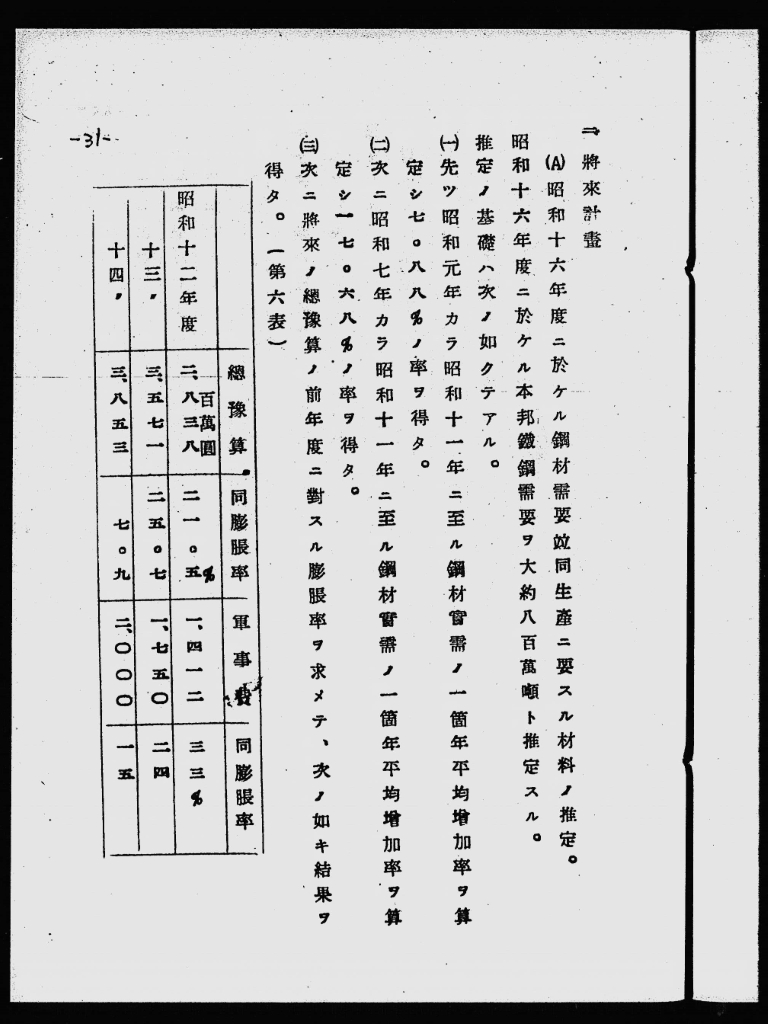 -31-
二 將來計畫
(A)昭和十六年度ニ於ケル鋼材需要竝同生產ニ要スル材料ノ推定。
昭和十六年度ニ於ケル本邦鐵鋼需要ヲ大約八百萬噸ト推定スル。
推定ノ基礎ハ次ノ如クテアル。
(一)先ツ昭和元年カラ昭和十一年ニ至ル鋼材實需ノ一箇年平均增加率ヲ算
定シ七。八八%ノ率ヲ得タ。
(二)次ニ昭和七年カラ昭和十一年ニ至ル鋼材實需ノ一箇年平均增加率ヲ算
定シ一七。六八%ノ率ヲ得タ。
(三)次ニ將來ノ總豫算ノ前年度ニ對スル膨脹率ヲ求メテ、次ノ如キ結果ヲ
得タ。(第六表)
總豫算 同膨脹率 軍事費 同膨脹率
百萬圓
昭和十二年度 二、八三八 二一。五% 一、四一二 三三%
十三〃 三、五七一 二五。七 一、七五〇 二四
十四〃 三、八五三 七。九 二、〇〇〇 一五